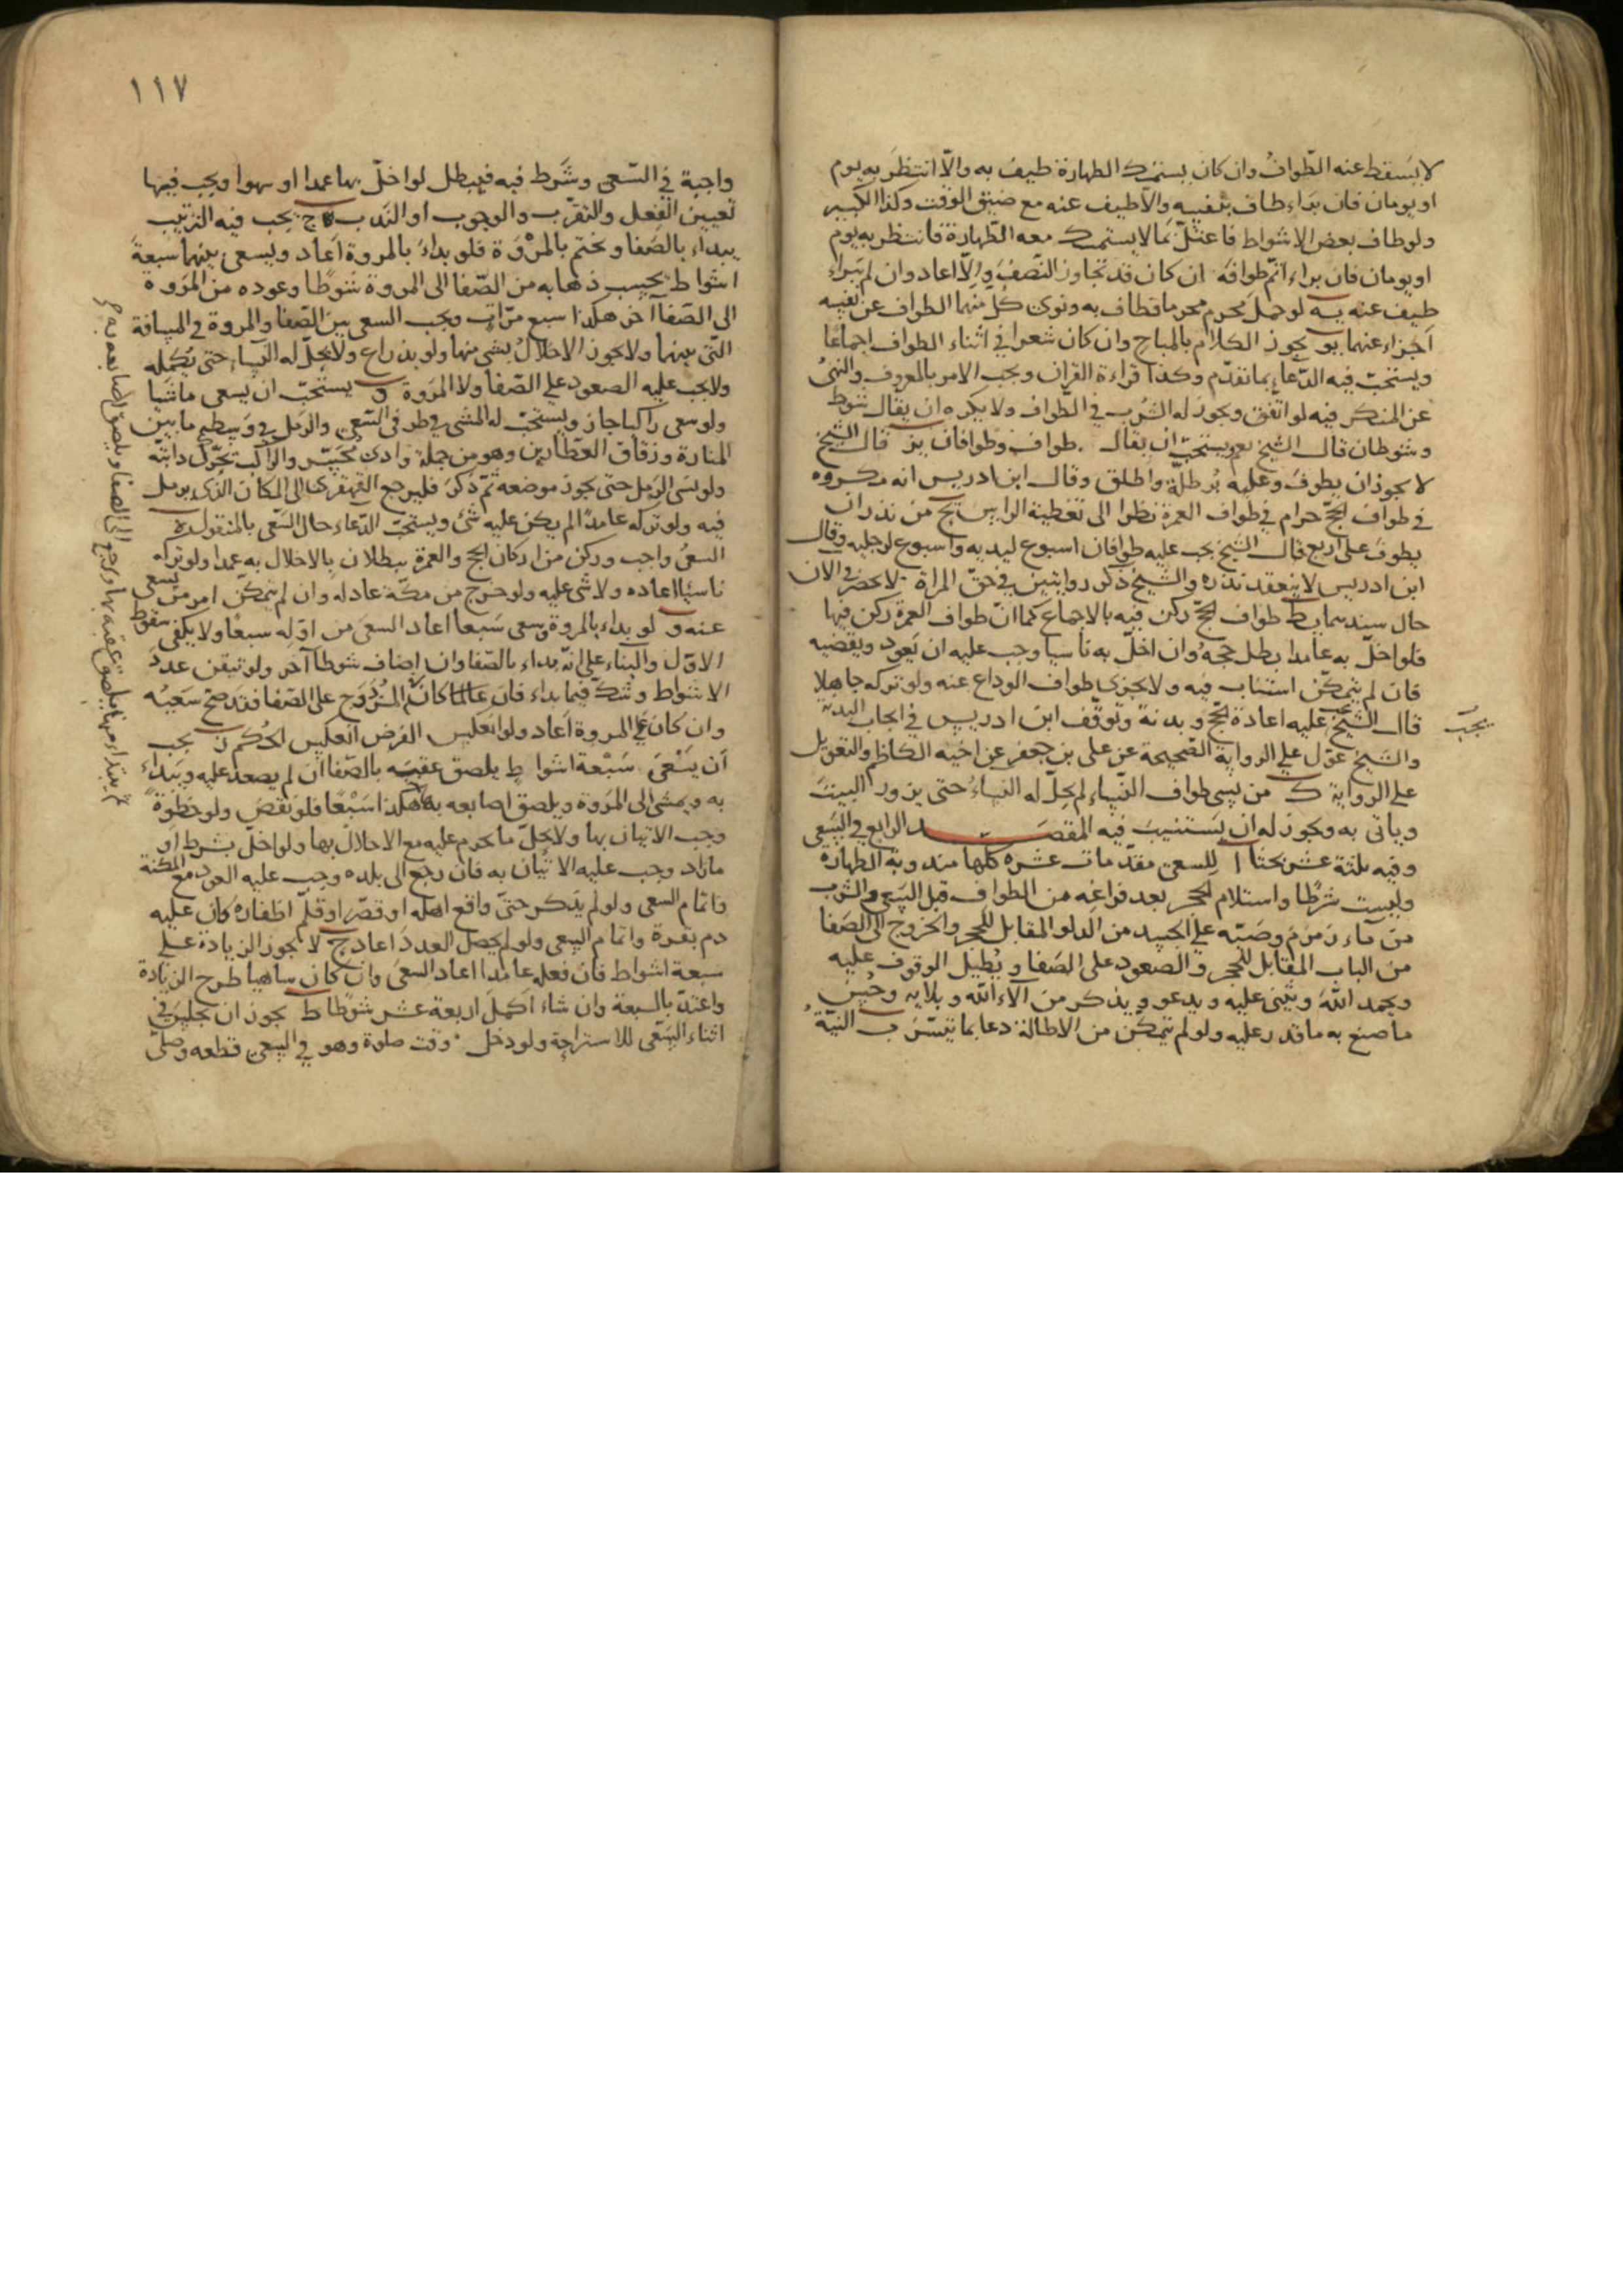 لا يسقط عنه الطواف وان كان يستمسك الطهارة طيف به والّا انتظر به يوم
او يومان فان براء طاف بنفسه والّا طيف عنه مع ضيق الوقت وكذا الكسير
ولو طاف بعض الاشواط فاعتلّ بما لا يستمسك معه الطّهارة فانتظر به يوم
او يومان فان براء اتمّ طوافه ان كان قد تجاوز النّصف والّا اعاد وان لم يبراء
طيف عنه يه لو حمل محرم محرما فطاف به ونوى كلّ منهما الطواف عن نفسه
اجزاء عنهما يو يجوز الكلام بالمباح وان كان شعرا في اثناء الطواف اجماعا
ويستحبّ فيه الدّعاء بما تقدّم وكذا قراءة القران ويجب الامر بالمعروف والنهى
عن المنكر فيه لو اتّفق ويجوز له الشرب في الطواف ولا يكره ان يقال شوط
وشوطان قال الشيخ نعم يستحبّ ان يقال طواف وطوافان يز قال الشيخ
لا يجوز ان يطوف وعليه بُرطلّة واطلق وقال ابن ادريس انه مكروه
في طواف الحجّ حرام في طواف العمرة نظرا الى تغطية الراس يح من نذر ان
يطوف على اربع قال الشيخ يجب عليه طوافان اسبوع ليديه واسبوع لرجليه وقال
ابن ادريس لا ينعقد نذره والشيخ ذكر روايتين في حقّ المراة لا يحضرنى الان
حال سندهما يط طواف الحجّ ركن فيه بالاجماع كما انّ طواف العمرة ركن فيها
فلو اخلّ به عامدا بطل حجّه وان اخلّ به ناسيا وجب عليه ان يعود ويقضيه
فان لم يتمكّن استناب فيه ولا يجزى طواف الوداع عنه ولو تركه جاهلا
قال الشيخ عليه اعادة الحجّ وبدنة وتوقّف ابن ادريس في ايجاب البدنة
يجب
والشيخ عوّل على الرواية الصّحيحة عن على بن جعفر عن اخيه الكاظم والتعويل
على الرواية ك من نسى طواف النّساء لم يحلّ له النساءُ حتى يزور البيت
وياتى به ويجوز له ان يستنيب فيه المقصد الرابع في السّعى
وفيه ثلثة عشر بحثا ا للسعى مقدّمات عشرة كلّها مندوبة الطهارة
وليست شرطا واستلام الحجر بعد فراغه من الطواف قبل السّعى والشرب
من ماء زمزم وصَبّه على الجسد من الدلو المقابل للحجر والخروج الى الصّفا
من الباب المقابل للحجر والصعود على الصّفا ويُطيل الوقوف عليه
ويحمد اللّه ويثنى عليه ويدعو ويذكر من الاء اللّه وبلايه وحُسن
ما صنع به ما قدر عليه ولو لم يتمكّن من الاطالة دعا بما تيسّر ب النيّة
١١٧
واجبة في السّعى وشرط فيه فيبطل لو اخلّ بها عمدا او سهوا ويجب فيها
تعيين الفعل والتقرّب والوجوب او الندب ج يجب فيه الترتيب
يبداء بالصّفا ويختم بالمروة فلو بداء بالمروة اعاد ويسعى بينهما سبعة
اشواط يحسب ذهابه من الصّفا الى المروة شوطا وعوده من المروة
الى الصّفا آخر هكذا سبع مرّات ويجب السعى بين الصّفا والمروة في المسافة
التى بينهما ولا يجوز الاخلال بشى منها ولو بذراع ولا يحلّ له النساء حتى يكمله
ولا يجب عليه الصعود على الصّفا ولا المروة و يستحبّ ان يسعى ماشيا
ولو سعى راكبا جاز ويستحبّ له المشى في طرفى السّعى والرمل في وسطه ما بين
المنارة وزقاق العطّارين وهو من جملة وادى مُحَسِّر والراكب يحرّك دابّته
ولو نسى الرمل حتى يجوز موضعه ثمّ ذكر فليرجع القهقرى الى المكان الذى يرمل
فيه ولو تركه عامدا لم يكن عليه شئ ويستحبّ الدّعاء حال السّعى بالمنقول ه
السعىُ واجب وركن من اركان الحج والعمرة يبطلان بالاخلال به عمدا ولو تركه
ناسيا اعاده ولا شى عليه ولو خرج من مكّة عاد له وان لم يتمكّن امر من يسعى
عنه و لو بداء بالمروة وسعى سبعا اعاد السعى من اوّله سبعا ولا يكفى سقوط
الاوّل والبناء على انّه بداء بالصّفا وان اضاف شوطا آخر ولو تيقن عدد
الاشواط وشكّ فيما بداء فان كان المزدوج على الصّفا فقد صحّ سعيُه
وان كان على المروة اعاد ولو انعكس الفرض انعكس الحكم ز يجب
أن يَسْعى سَبْعة اشواط يلصق عقبيه بالصّفا ان لم يصعد عليه ويبداء
به ويمشى الى المروة ويلصق اصابعه بها هكذا سَبْعًا فلو نقص ولو خطوة
وجب الاتيان بها ولا يحلّ ما يحرم عليه مع الاخلال بها ولو اخلّ بشرط او
مازاد وجب عليه الاتيان به فان رجع الى بلده وجب عليه العود مع المكنة
واتمام السعى ولو لم يذكر حتّى واقع اهله او قصّر او قلّم اظفاره كان عليه
دم بقرة واتمام السعى ولو لم يحصل العدد اعاد ح لا يجوز الزيادة على
سبعة اشواط فان فعله عامدا اعاد السعى وان كان ساهيا طرح الزيادة
واعتدّ بالسبعة وان شاء اكمل اربعة عشر شوطا ط يجوز ان يجلس في
اثناء السّعى للاستراحة ولو دخل وقت صلوة وهو في السعى قطعه وصلّى